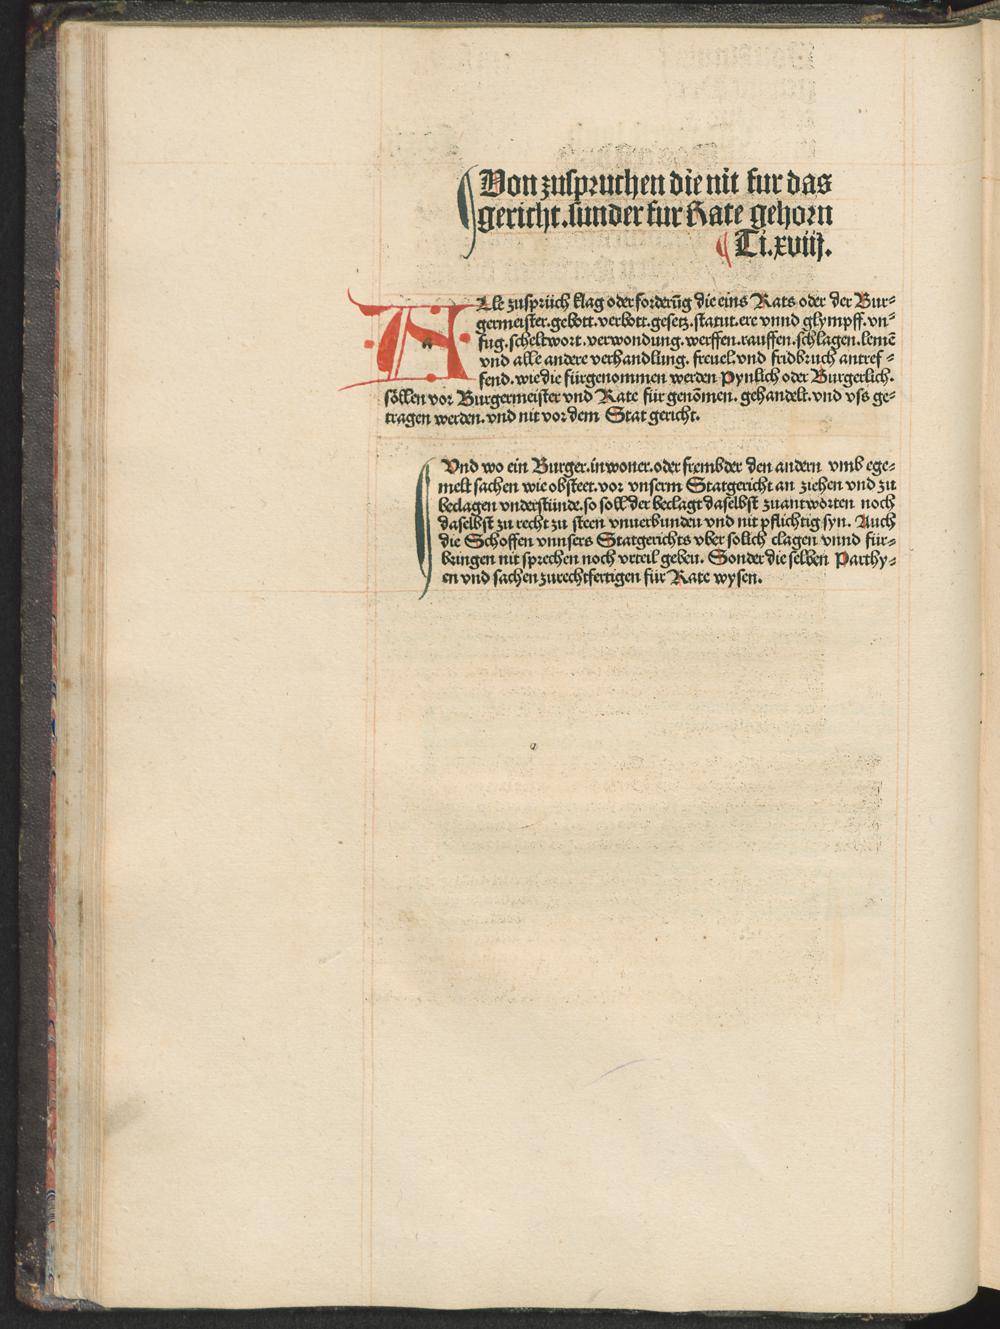 Von zuspruchen die nit fur das
gericht. sunder fur Rate gehorn
Ti. xviij.
Alle zusprüch klag oder forderūg die eins Rats oder der Bur-
germeister. gebott. verbott. gesetz. statut. ere vnnd glympff. vn-
fug. scheltwort. verwondung. werffen. rauffen. schlagen. lemē
vnd alle andere verhandlung. freuel. vnd fridbruch antref-
fend. wie die fürgenommen werden Pynlich oder Burgerlich.
söllen vor Burgermeister vnd Rate für genōmen. gehandelt. vnd vss ge-
tragen werden. vnd nit vor dem Stat gericht.
Vnd wo ein Burger. inwoner. oder frembder den andern vmb ege-
melt sachen wie obsteet. vor vnserm Statgericht an ziehen vnd zu
beclagen vnderstünde. so soll der beclagt daselbst zuantworten noch
daselbst zu recht zu steen vnuerbunden vnd nit pflichtig syn. Auch
die Schoffen vnnsers Statgerichts vber solich clagen vnnd für-
bringen nit sprechen noch vrteil geben. Sonder die selben Parthy-
en vnd sachen zurechtfertigen für Rate wysen.